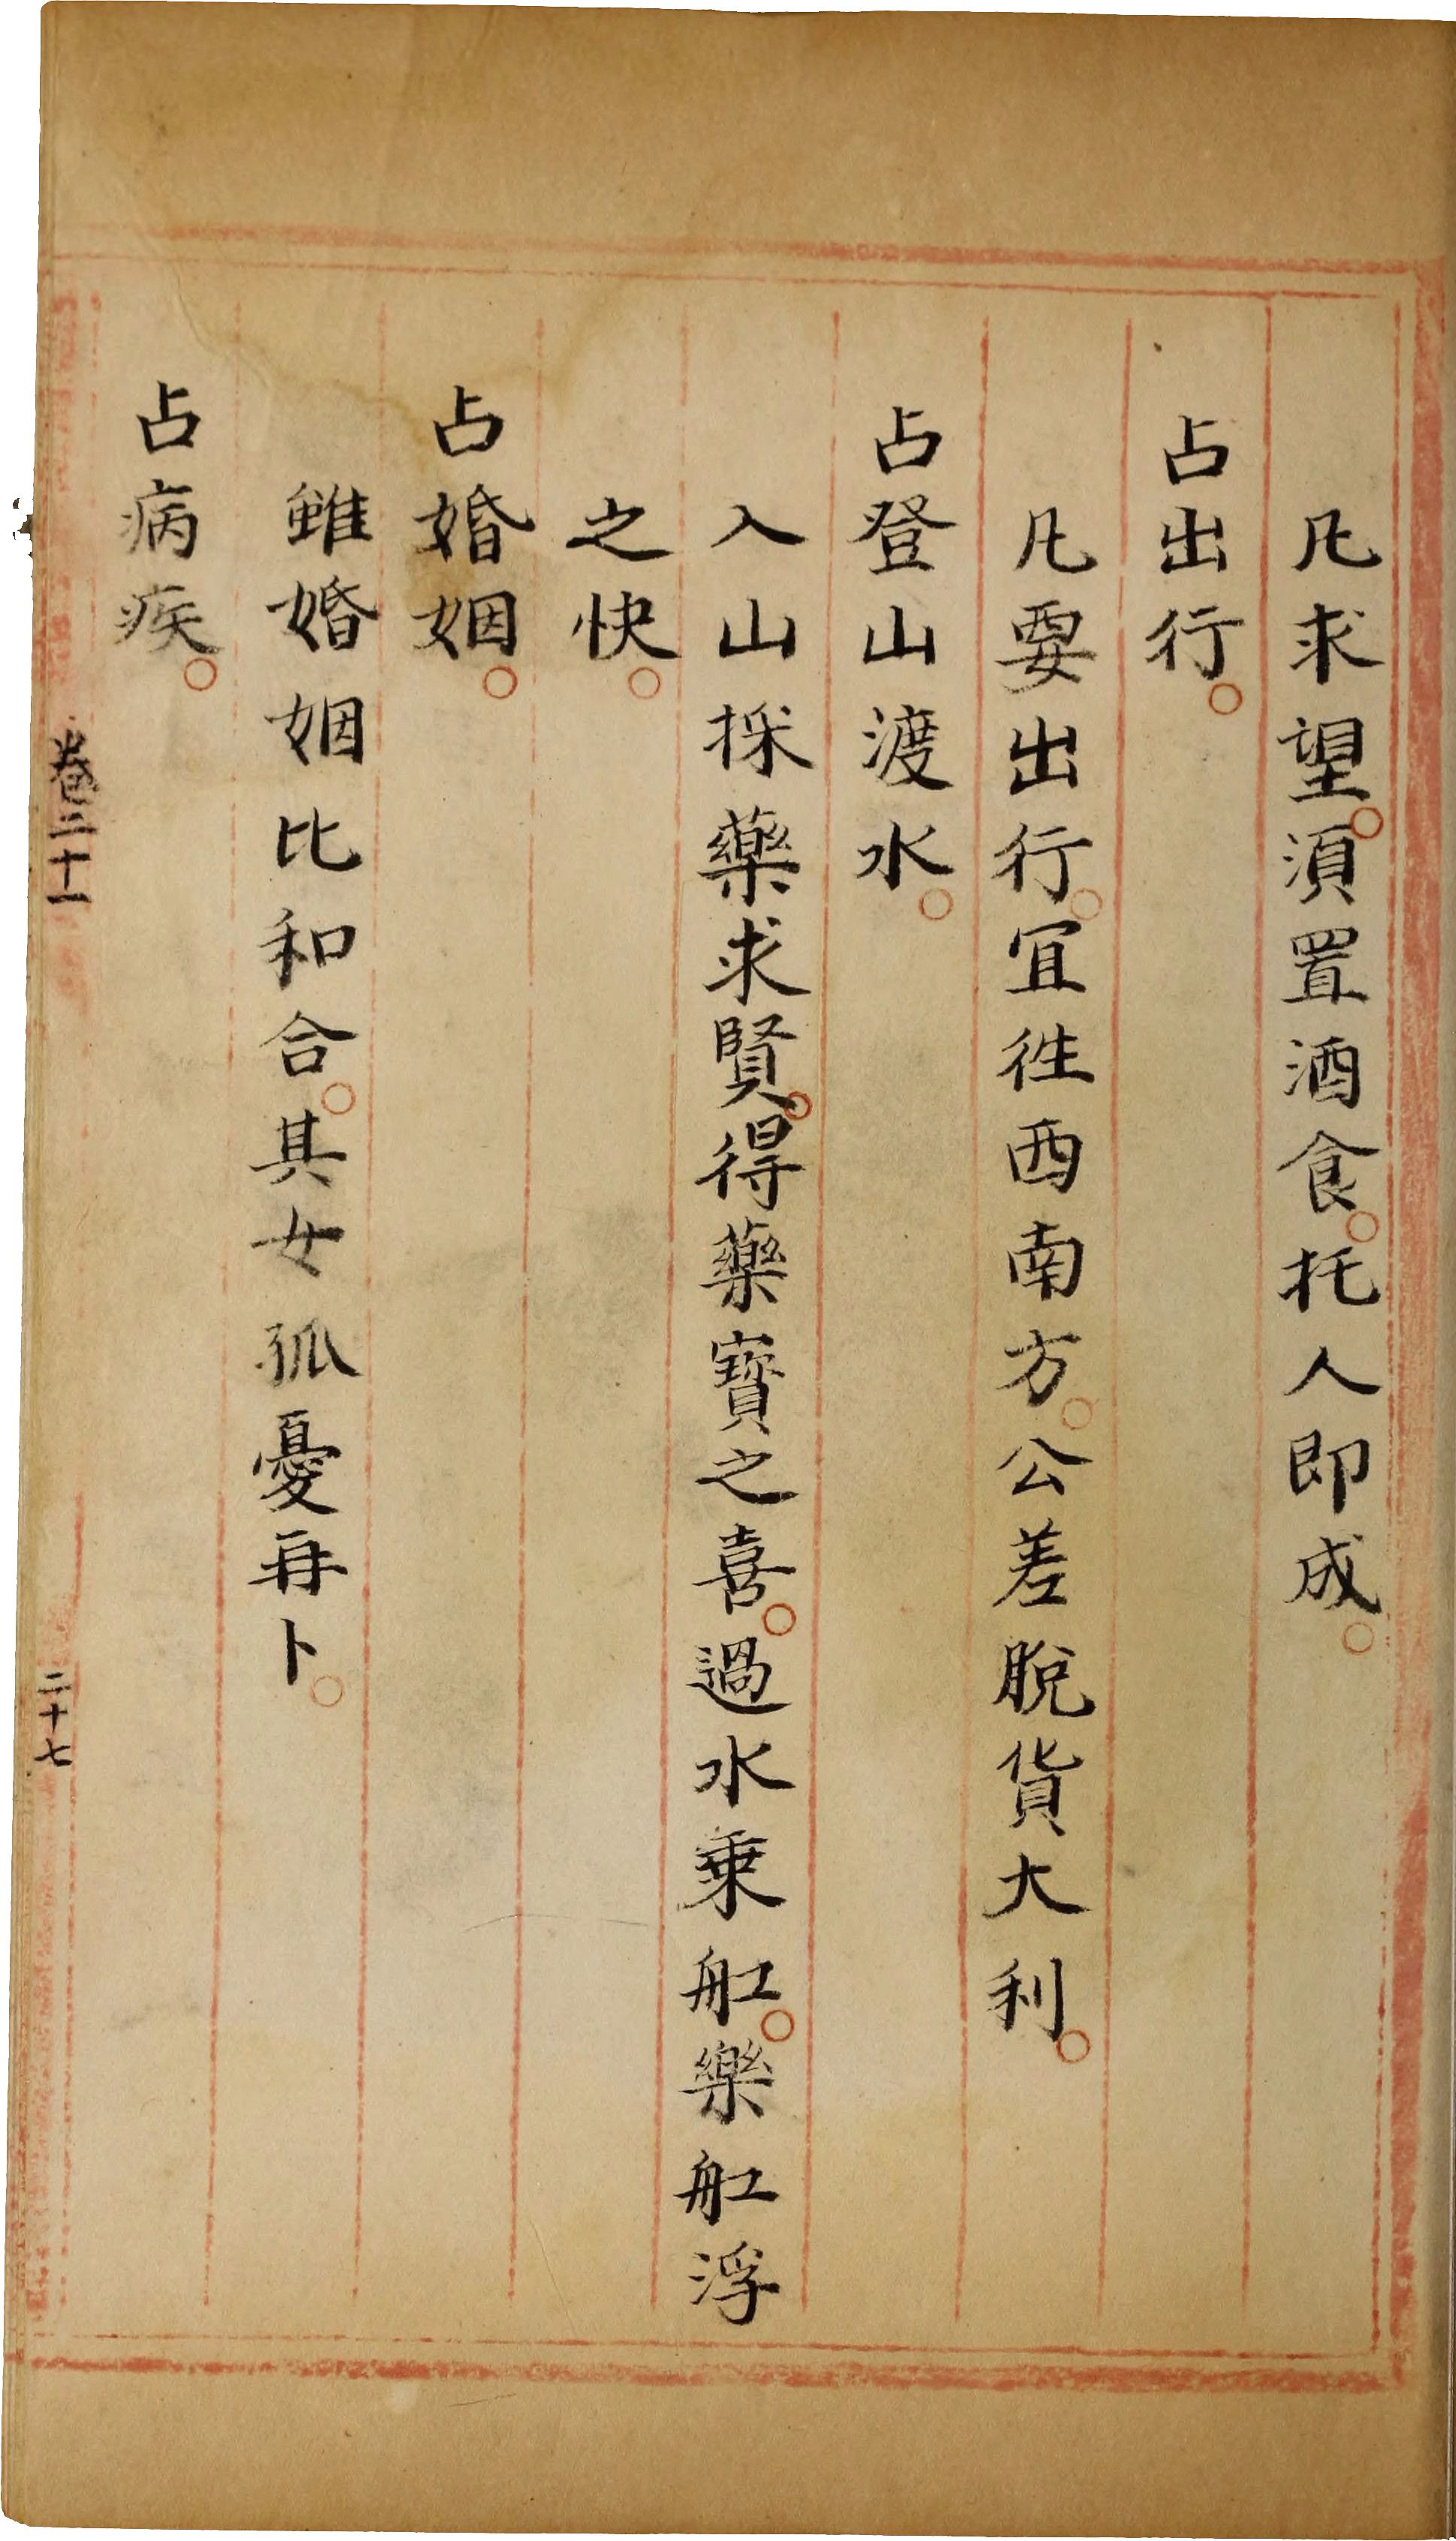 凡求望。須置酒食。托人即成。
占出行。
凡要出行。宜徃西南方。公差脫貨大利。
占登山渡水。
入山採藥求賢。得藥寶之喜。過水乗舡。樂舡浮
之快。
占婚姻。
雖婚姻比和合。其女孤憂再卜。
占病疾。
卷二十一
二十七